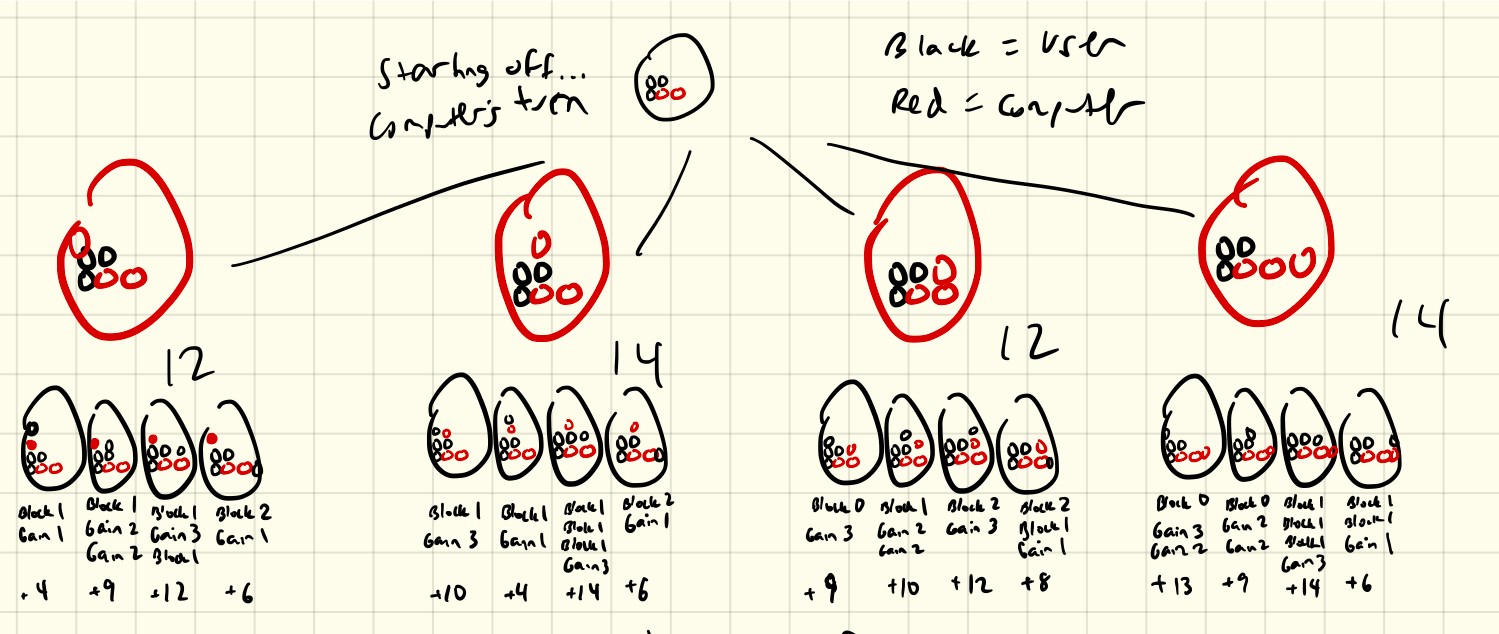 Starting off...
Computer's turn
Black = User
Red = Computer
12
14
12
14
Block 1
Gain 1
+4
Block 1
Gain 2
Gain 2
+9
Block 1
Gain 3
Block 1
+12
Block 2
Gain 1
+6
Block 1
Gain 3
+10
Block 1
Gain 1
+4
Block 1
Block 1
Block 1
Gain 3
+14
Block 2
Gain 1
+6
Block 0
Gain 3
+9
Block 1
Gain 2
Gain 2
+10
Block 2
Gain 3
+12
Block 2
Block 1
Gain 1
+8
Block 0
Gain 3
Gain 2
+13
Block 0
Gain 2
Gain 2
+9
Block 1
Block 1
Block 1
Gain 3
+14
Block 1
Block 1
Gain 1
+6